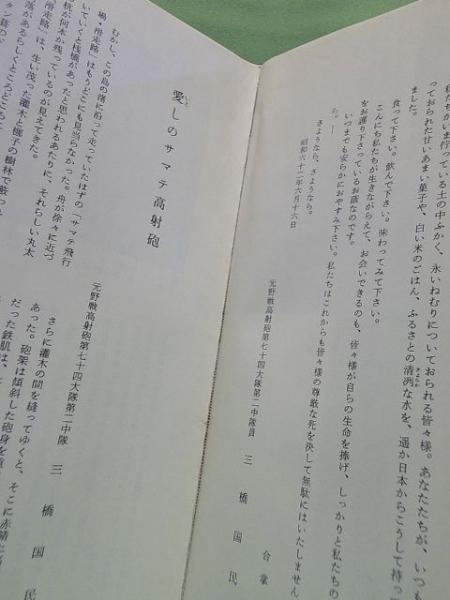 私たちがいま行っている土の中ふかく、永いねむりについておられる皆々様。あなたたちが、いつも
っておられた甘いあまい菓子や、白い米のごはん、ふるさとの清冽な水を、遥か日本からこうして持っ
ました。
食って下さい。飲んで下さい。味わってみて下さい。
こんにち私たちが生きながらえて、お会いできるのも、皆々様が自らの生命を捧げ、しっかりと私たちの
をお護り下さっているお蔭なのです。
いつまでも安らかにおやすみ下さい。私たちはこれからも皆々様の尊敬な死を決して無駄にはいたしません
さようなら、さようなら。
昭和六十二年六月十六日
合掌
元野戦高射砲第七十四大隊第二中隊員 三橋国民
愛しのサマテ高射砲
元野戦高射砲第七十四大隊第二中隊 三橋国民
むかし、この島の渚に沿って走っていたはずの「サマテ飛行
場・滑走路」はもうどこにも見当らなかった。舟が徐々に近づ
いていくと桟橋があったと思われるあたりに、それらしい丸太
杭が何本か残っているのが見えてきた。
滑走路」は、生い茂った灌木と椰子の樹林で蔽っ
落があるらしくところどころに
さらに灌木の間を縫ってゆくと、そこに赤錆た
あった。砲架は傾斜した砲身を
だった鉄肌は、